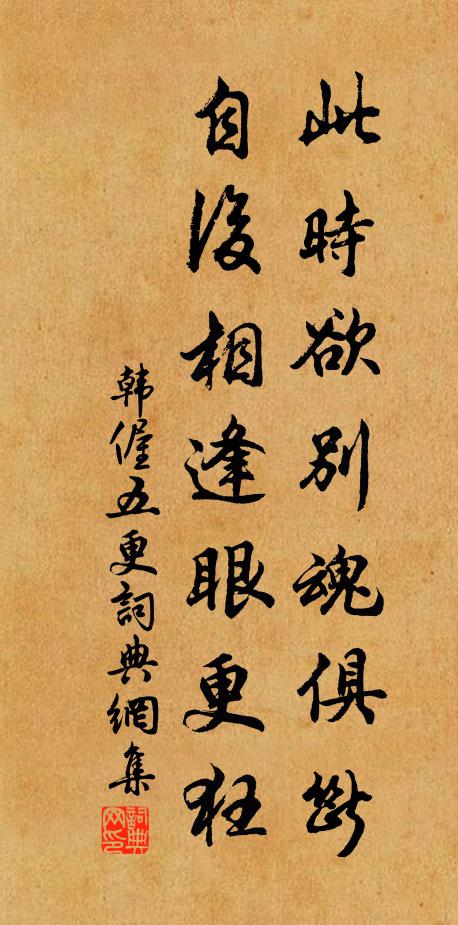 此時欲別魂俱斷
自後相逢眼更狂
韩偓五更詞典網集
詞典网印